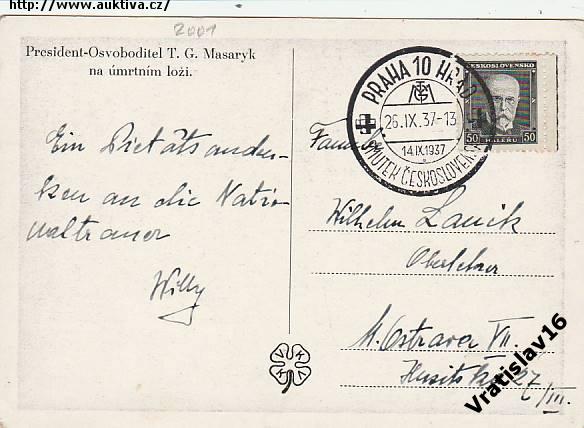 http://www.auktiva.cz/
2001
President-Osvoboditel T. G. Masaryk
na úmrtním loži.
Ein Pietätsanden-
ken an die Natio-
naltrauer
Willy
PRAHA 10 HRAD
TGM
26.IX.37-13
14.IX.1937
SMUTEK ČESKOSLOVENSKA
ČESKOSLOVENSKO
50 HALÉŘŮ 50
Familie
Wilhelm Lanik
Oberlehrer
M. Ostrava VII.
Husitská 27/III.
V K K V
Vratislav16